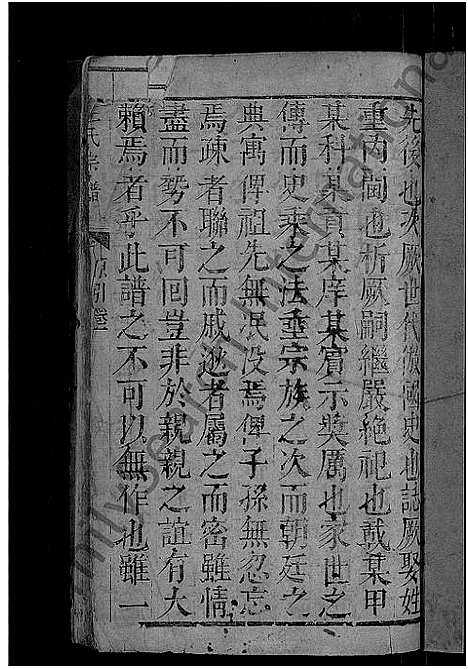 先後也次厥世代倣國史也誌厥娶姓
重內閫也析厥嗣繼嚴絶祀也載某甲
某科某貢某庠某賓示奬厲也家世之
傳而史乘之法垂宗族之次而朝廷之
典寓俾祖先無泯没焉俾子孫無忽忘
焉疎者聯之而戚逖者屬之而密雖情
盡而勢不可回豈非於親親之誼有大
賴焉者乎此譜之不可以無作也雖一
氏宗譜